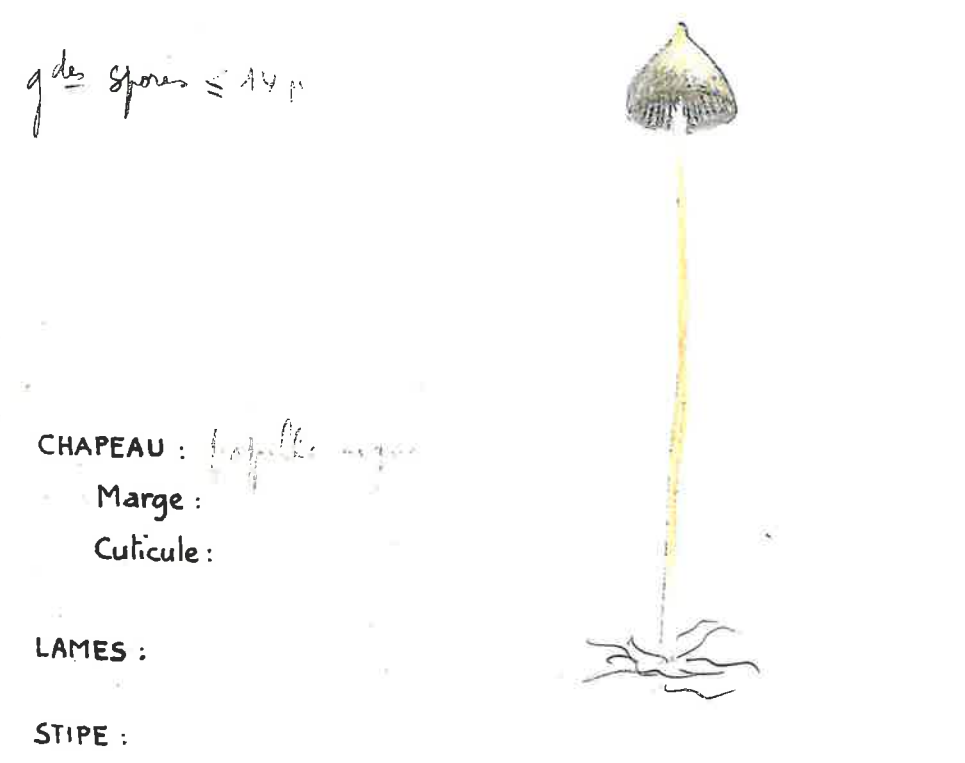 gdes spores ≤ 14 µ
CHAPEAU :
Marge :
Cuticule :
LAMES :
STIPE :